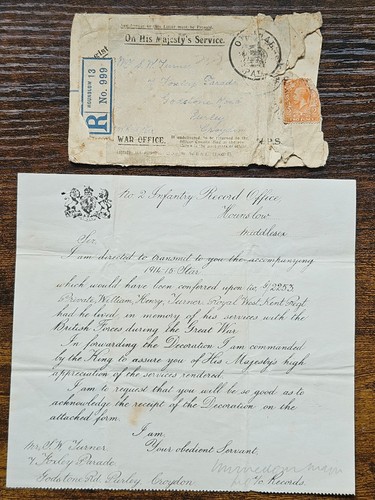 On His Majesty's Service.
HOUNSLOW 13
R No. 999
WAR OFFICE.
No. 2 Infantry Record Office,
Hounslow
Middlesex
Sir.
I am directed to transmit to you the accompanying
1914-15 Star
which would have been conferred upon No. G/2253
Private, William, Henry, Turner, Royal West Kent Regt
had he lived, in memory of his services with the
British Forces during the Great War.
In forwarding the Decoration I am commanded
by the King to assure you of His Majesty's high
appreciation of the services rendered.
I am to request that you will be so good as to
acknowledge the receipt of the Decoration on the
attached form.
I am,
Your obedient Servant,
i/c Records.
Mr. S. W. Turner.
7 Foxley Parade
Godstone Rd. Purley, Croydon